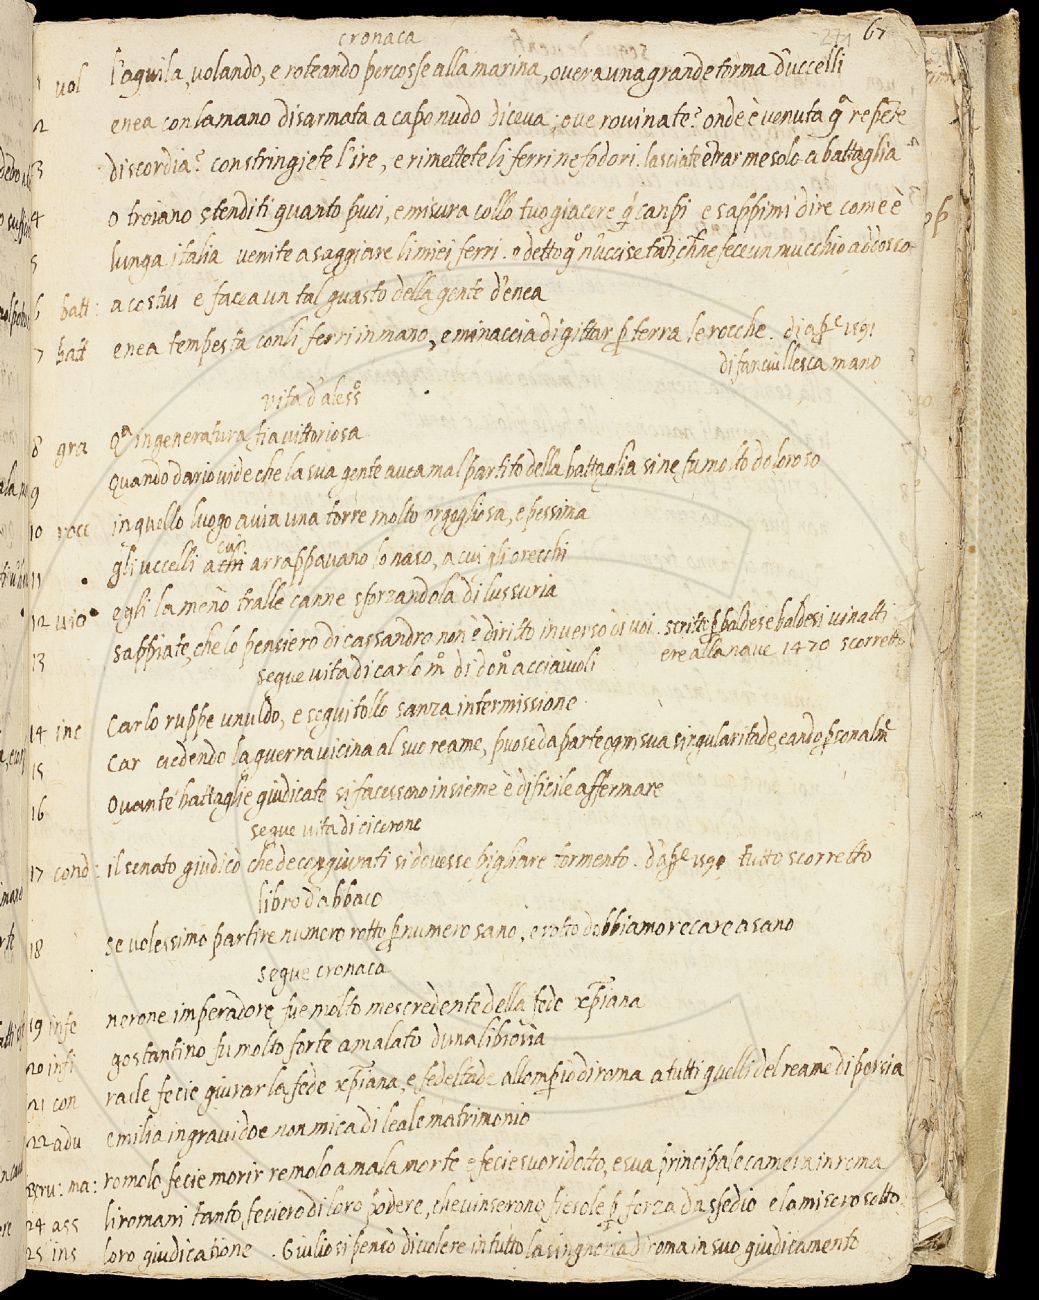 cronaca
67
1 vol l'aquila, volando, e roteando percosse alla marina, overa una grande torma d'uccelli
2 enea con la mano disarmata a capo nudo diceva; ove rovinate? onde è venuta
3 discordia? constringiete l'ire, e rimettete li ferri ne fodori. lasciate me solo a battaglia
4 o troiano stenditi quanto puoi, e misura collo tuo giacere canpi e sappimi dire come è
5 lunga italia venite a saggiare li miei ferri. detto n'uccise fece un mucchio addosso
6 batt: a costui e facea un tal guasto della gente d'enea
7 batt enea tempesta conli ferri in mano, e minaccia di gittar p terra le rocche. 1591
di fanciullesca mano
vita d'aless
8 gra ingeneratura fia vittoriosa
9 Quando dario vide che la sua gente avea mal partito della battaglia si ne fu molto doloroso
10 rocc in quello luogo avia una torre molto orgogliosa, e pessima
11 gli uccelli a cui arrappavano lo naso, a cui gli orecchi
12 egli la menò tralle canne sforzandola di lussuria
13 sappiate, che lo pensiero di cassandro non è diritto inverso voi. baldese baldesi vinatti
ere alla nave 1470 scorretto
segue vita di carlo m di don acciaivoli
14 inc Carlo ruppe unuldo, e seguitollo sanza intermissione
15 Car credendo la guerra vicina al suo reame, puose da parte ogni sua singularitade,
16 Quante battaglie giudicate si facessono insieme è dificile affermare
segue vita di cicerone
17 cond: il senato giudicò che de congiurati si dovesse pigliare tormento. tutto scorretto
libro d'abbaco
18 se volessimo partire numero rotto p numero sano, e rotto dobbiamo recare a sano
segue cronaca
19 infe nerone imperadore fue molto mescredente della fede xpiana
20 infi gostantino fu molto forte amalato
21 con racle fecie giurar la fede xpiana e fedeltade allomperio di roma a tutti quelli del reame di persia
22 adu emilia ingravidoe non mica di leale matrimonio
ru: ma: romolo fecie morir remolo a mala morte e fecie suo ridotto, e sua principale camera in roma
24 ass li romani tanto feciero di loro podere, che vinserono fiesole p forza d'assedio e la misero sotto
25 ins loro giudicatione. Giulio si pensò di volere in tutto la singnoria di roma in suo giudicamento